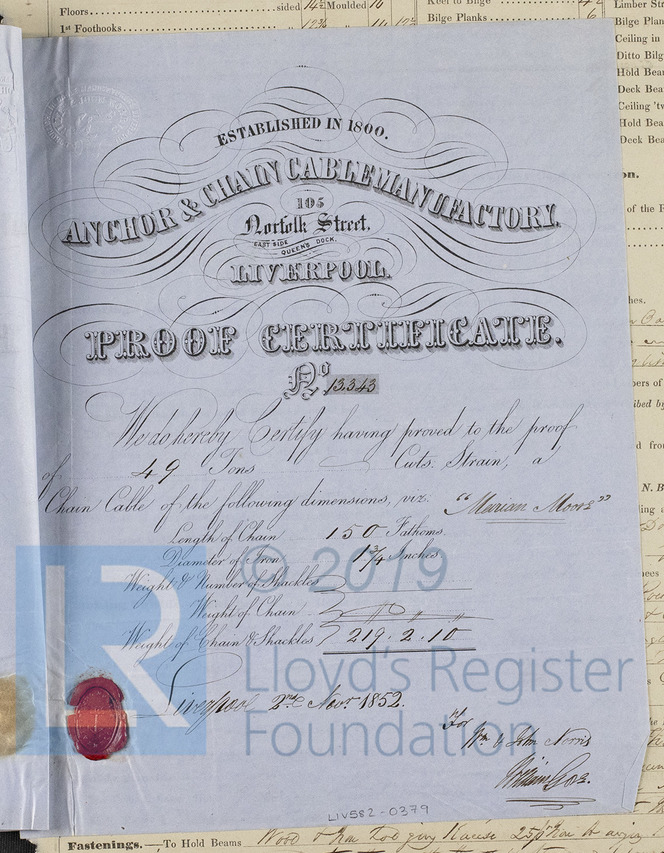 Floors sided 14½ Moulded 16
1st Foothooks
Keel to Bilge
Bilge Planks 6
Limber St
Bilge Plan
Ceiling in
Ditto Bilg
Hold Bea
Deck Bea
Ceiling 'tw
Hold Bea
Deck Bea
ESTABLISHED IN 1800.
ANCHOR & CHAIN CABLE MANUFACTORY.
105
Norfolk Street,
EAST SIDE QUEEN'S DOCK.
LIVERPOOL.
PROOF CERTIFICATE.
No 13343
We do hereby Certify having proved to the proof
of 49 Tons Cwts. Strain, a
Chain Cable of the following dimensions, viz: "Marian Moore"
Length of Chain 150 Fathoms.
Diameter of Iron 1¾ Inches
Weight & Number of Shackles
Weight of Chain " "
Weight of Chain & Shackles 219.2.10
Liverpool 2nd Novr 1852.
For
Wm & John Norris
© 2019
LR
Lloyd's Register
Foundation
LIV582-0379
Fastenings.—To Hold Beams Wood & Iron